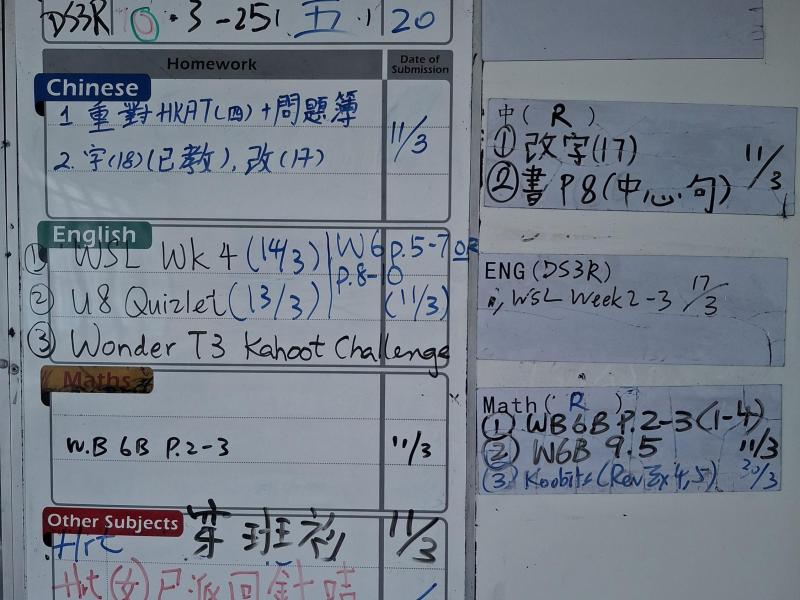 DS3R 10.3-25 五 20
Homework
Date of Submission
Chinese
1 重對HKAT(四)+問題簿
2. 字(18)(已教),改(17)
11/3
English
① WSL Wk 4 (14/3) W6 p.5-7 or
p.8-10
② U8 Quizlet (13/3) (11/3)
③ Wonder T3 Kahoot Challenge
Maths
W.B 6B P.2-3 11/3
Other Subjects
穿 班衫 11/3
中( R )
① 改字(17)
② 書 P8(中心句)
11/3
ENG(DS3R)
WSL Week 2-3 17/3
Math( R )
① WB 6B P.2-3 (1-4)
② W6B 9.5 11/3
③ Koobits (Rev Ex 4,5) 20/3